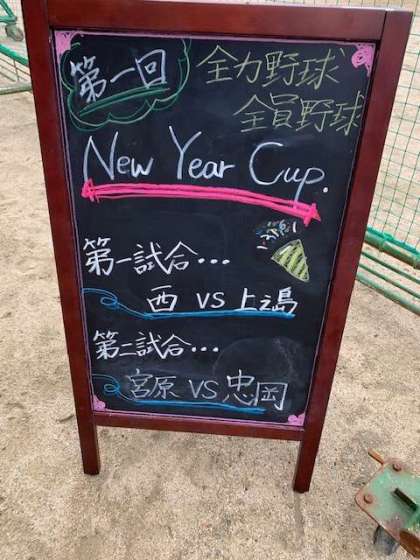 第一回
全力野球
全員野球
New Year Cup.
第一試合…
西 VS 上之島
第二試合…
宮原 VS 忠岡